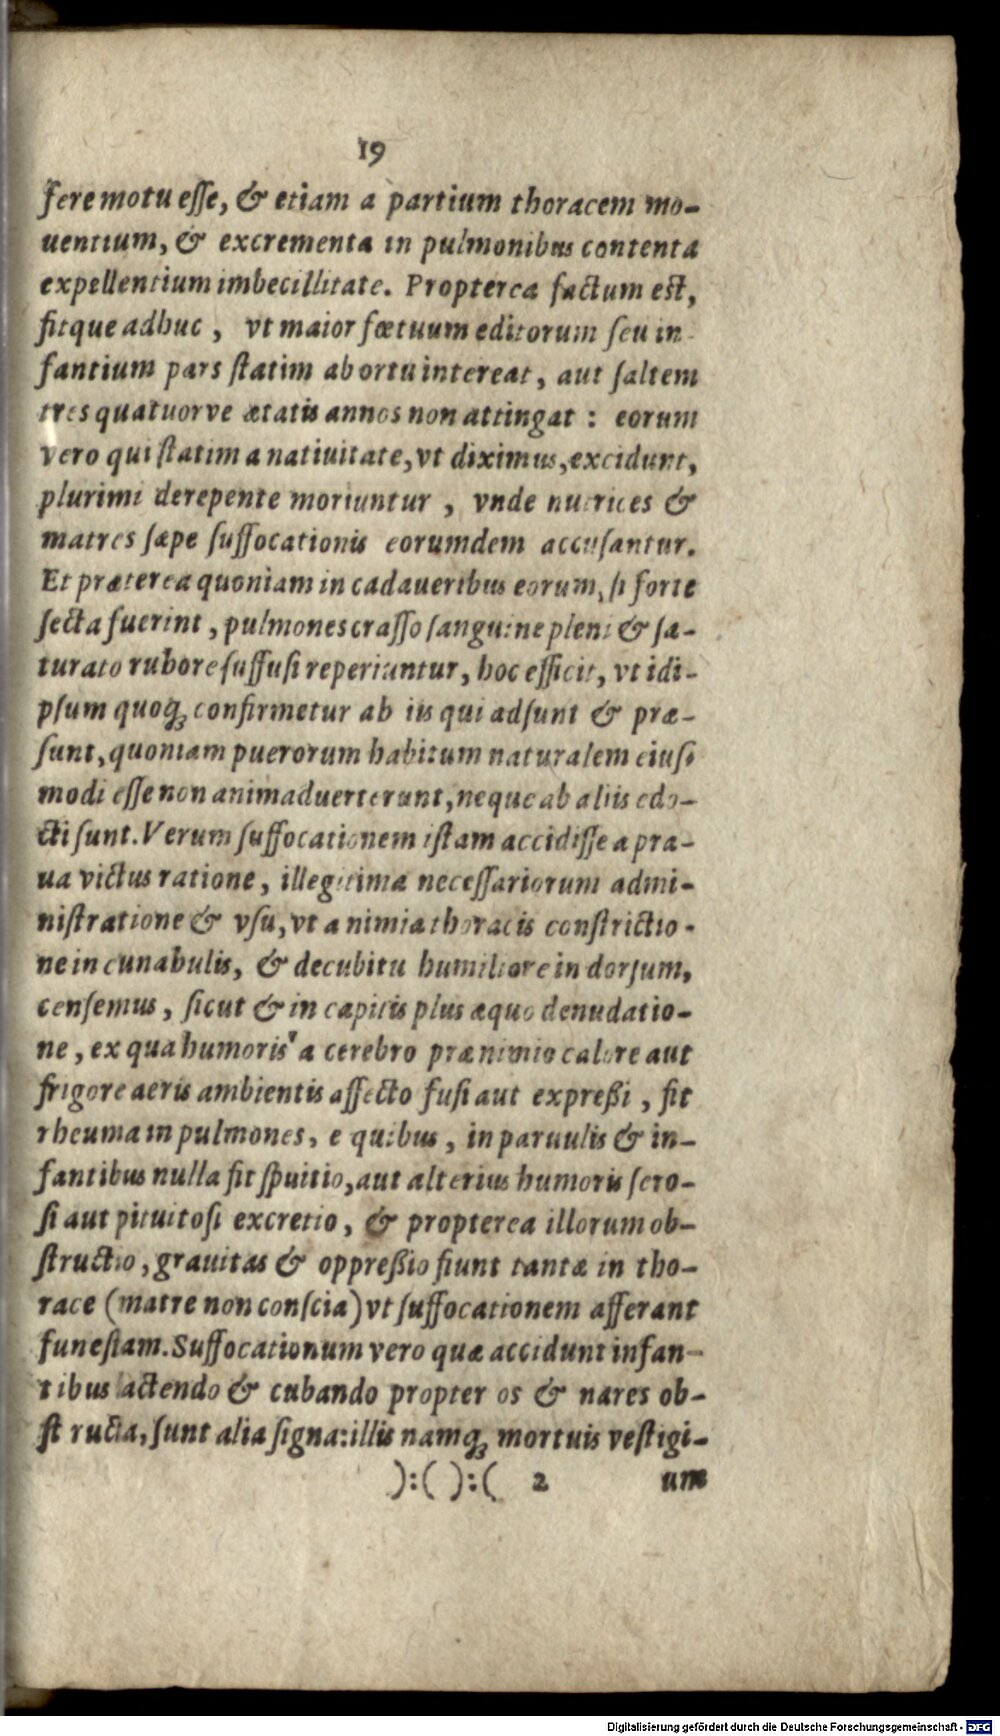 19
fere motu esse, & etiam a partium thoracem mo-
uentium, & excrementa in pulmonibus contenta
expellentium imbecillitate. Propterea factum est,
fitque adhuc, vt maior fœtuum editorum seu in-
fantium pars statim ab ortu intereat, aut saltem
tres quatuorve ætatis annos non attingat: eorum
vero qui statim a natiuitate, vt diximus, excidunt,
plurimi derepente moriuntur, vnde nutrices &
matres sæpe suffocationis eorumdem accusantur.
Et præterea quoniam in cadaueribus eorum, si forte
secta fuerint, pulmones crasso sanguine pleni & sa-
turato rubore suffusi reperiuntur, hoc efficit, vt idi-
psum quoq; confirmetur ab iis qui adsunt & præ-
sunt, quoniam puerorum habitum naturalem eius-
modi esse non animaduerterunt, neque ab aliis edo-
cti sunt. Verum suffocationem istam accidisse a pra-
ua victus ratione, illegitima necessariorum admi-
nistratione & vsu, vt a nimia thoracis constrictio-
ne in cunabulis, & decubitu humiliore in dorsum,
censemus, sicut & in capitis plus æquo denudatio-
ne, ex qua humoris a cerebro præ nimio calore aut
frigore aeris ambientis affecto fusi aut expreßi, fit
rheuma in pulmones, e quibus, in paruulis & in-
fantibus nulla fit spuitio, aut alterius humoris sero-
si aut pituitosi excretio, & propterea illorum ob-
structio, grauitas & oppreßio fiunt tantæ in tho-
race (matre non conscia) vt suffocationem afferant
funestam. Suffocationum vero quæ accidunt infan-
tibus lactendo & cubando propter os & nares ob-
structa, sunt alia signa: illis namq; mortuis vestigi-
):( ):( 2 um
Digitalisierung gefördert durch die Deutsche Forschungsgemeinschaft - DFG